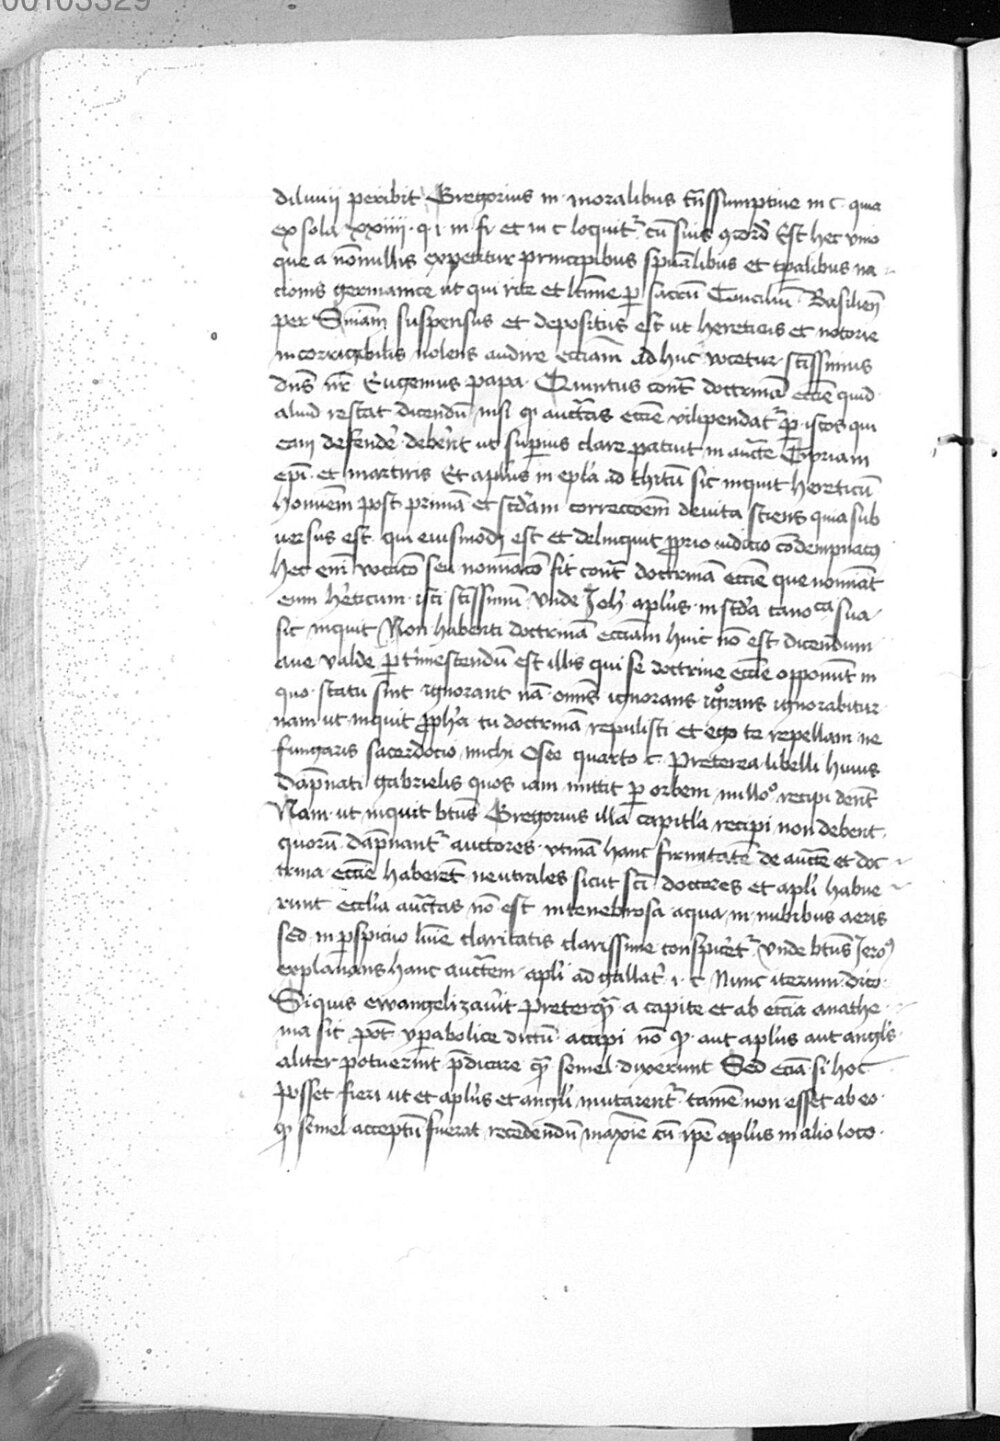 00103329
diluuii peribit Gregorius in moralibus tn̄ssumptiue in c. quia
ex sola xxiiii. q. i. in fi et in c loquit᷑ cū suis ꝯcord Est hec vnio
que a nōnullis expetitur principibus spūalibus et tp̄alibus na
cionis germanice ut qui rite et ltīme ꝑ sacrū Conciliū Basilien̄
per Sniam̄ suspensus et depositus est ut hereticus et notorie
incorrigibilis nolens audire ecciam̄ ad huc vocetur scīssimus
dn̄s nr̄ Eugenius papa. Quintus cont̄ doctrinā ecc̄ie quid
aliud restat dicendū nisi qꝫ auctas̄ ecc̄ie vilipendat᷑ ꝑ istos qui
eam defende᷑ debe᷑nt ut superius clare patuit in aucte̅ Cipriani
ep̄i et martiris Et aplūs in epl̄a ad thitū sic inquit hereticū
hominem̄ post primā et scd̄am correccoem̄ deuita sciens quia sub
uersus est qui eiusmodi est et delinquit ꝓprio iudicio cōdempnatꝰ
hec eni᷑ vocacō seu nominacō fit cont̄ doctrinā ecc̄ie que nominat̄
eum he᷑ticum isti scīssimū vnde Joh̄ aplūs in scd̄a canoca sua
sic inquit Non habenti doctrinā eccīam huic nō est dicendum
aue valde ꝑtimescendū est illis qui se doctrine ecc̄ie opponūt in
quo statu sint ignorant nā omīs ignorans ignorās ignorabitur
nam ut inquit ꝓph̄a tu doctrinā repulisti et ego te repellam ne
fungaris sacerdocio michi Osee quarto c. Preterea libelli huius
dāpnati gabrielis quos iam mittit ꝑ orbem nulloº recipi dent̄
Nam ut inquit btūs Gregorius illa capitl̄a recipi non debent
quorū dāpnant᷑ auctores vtinā hanc firmitatē de aucte̅ et doc
trina ecc̄ie haberet̄ neutrales sicut sc̄i doctores et apl̄i habue
runt eccl̄ia auctas̄ nō est in tenebrosa aqua in nubibus aeris
sed in ꝑspicuo lumīe claritatis clarissime conspicit᷑ vnde btūs Jeroº
explanans hanc auctem̄ apl̄i ad gallat᷑. i. c Nunc iterum dico
Si quis ewangelizaue᷑it preterqꝫ̄ a capite et ab eccīa anathe
ma sit pot̄ yꝑabolice dictū accipi nō qꝫ aut aplūs aut angl̄s
aliter potuerint p̄dicare qꝫ̄ semel dixerunt Sed eciā si hoc
posset fieri ut et aplūs et angl̄i mutarent᷑ tamē non esset ab eo
qꝫ semel acceptū fuerat recedendū maxīe cū ip̄e aplūs in alio loco